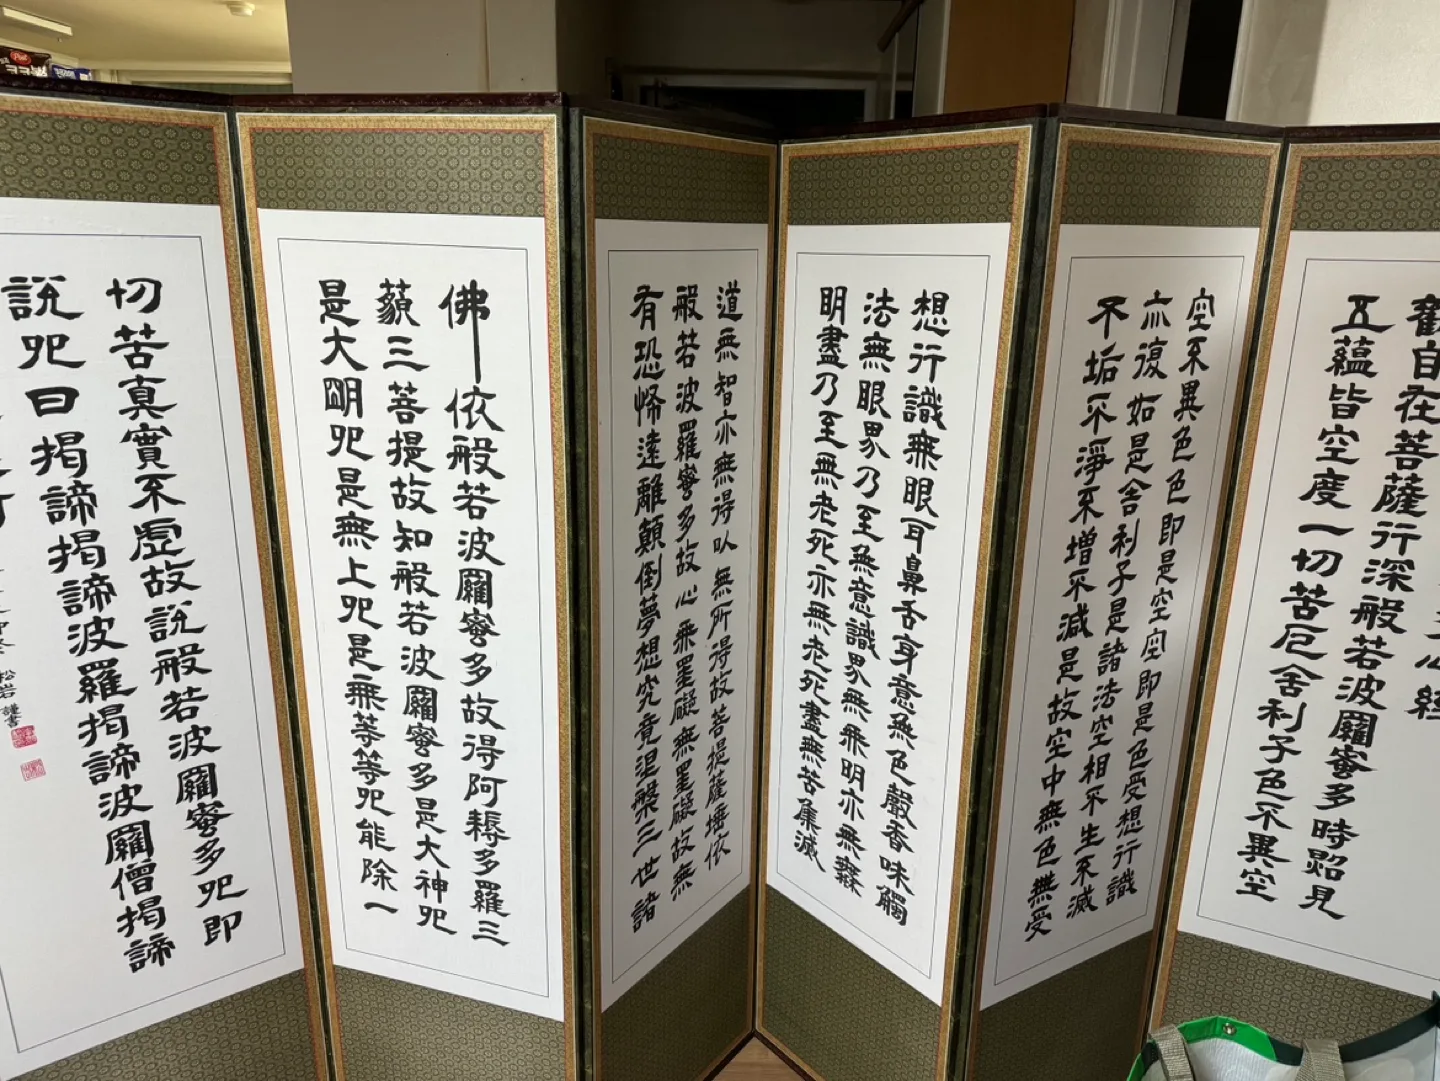 心經
觀自在菩薩行深般若波羅蜜多時照見
五蘊皆空度一切苦厄舍利子色不異空
空不異色色即是空空即是色受想行識
亦復如是舍利子是諸法空相不生不滅
不垢不淨不增不減是故空中無色無受
想行識無眼耳鼻舌身意無色聲香味觸
法無眼界乃至無意識界無無明亦無無
明盡乃至無老死亦無老死盡無苦集滅
道無智亦無得以無所得故菩提薩埵依
般若波羅蜜多故心無罣礙無罣礙故無
有恐怖遠離顛倒夢想究竟涅槃三世諸
佛依般若波羅蜜多故得阿耨多羅三
藐三菩提故知般若波羅蜜多是大神呪
是大明呪是無上呪是無等等呪能除一
切苦真實不虛故說般若波羅蜜多呪即
說呪曰揭諦揭諦波羅揭諦波羅僧揭諦
松岩謹書
Post